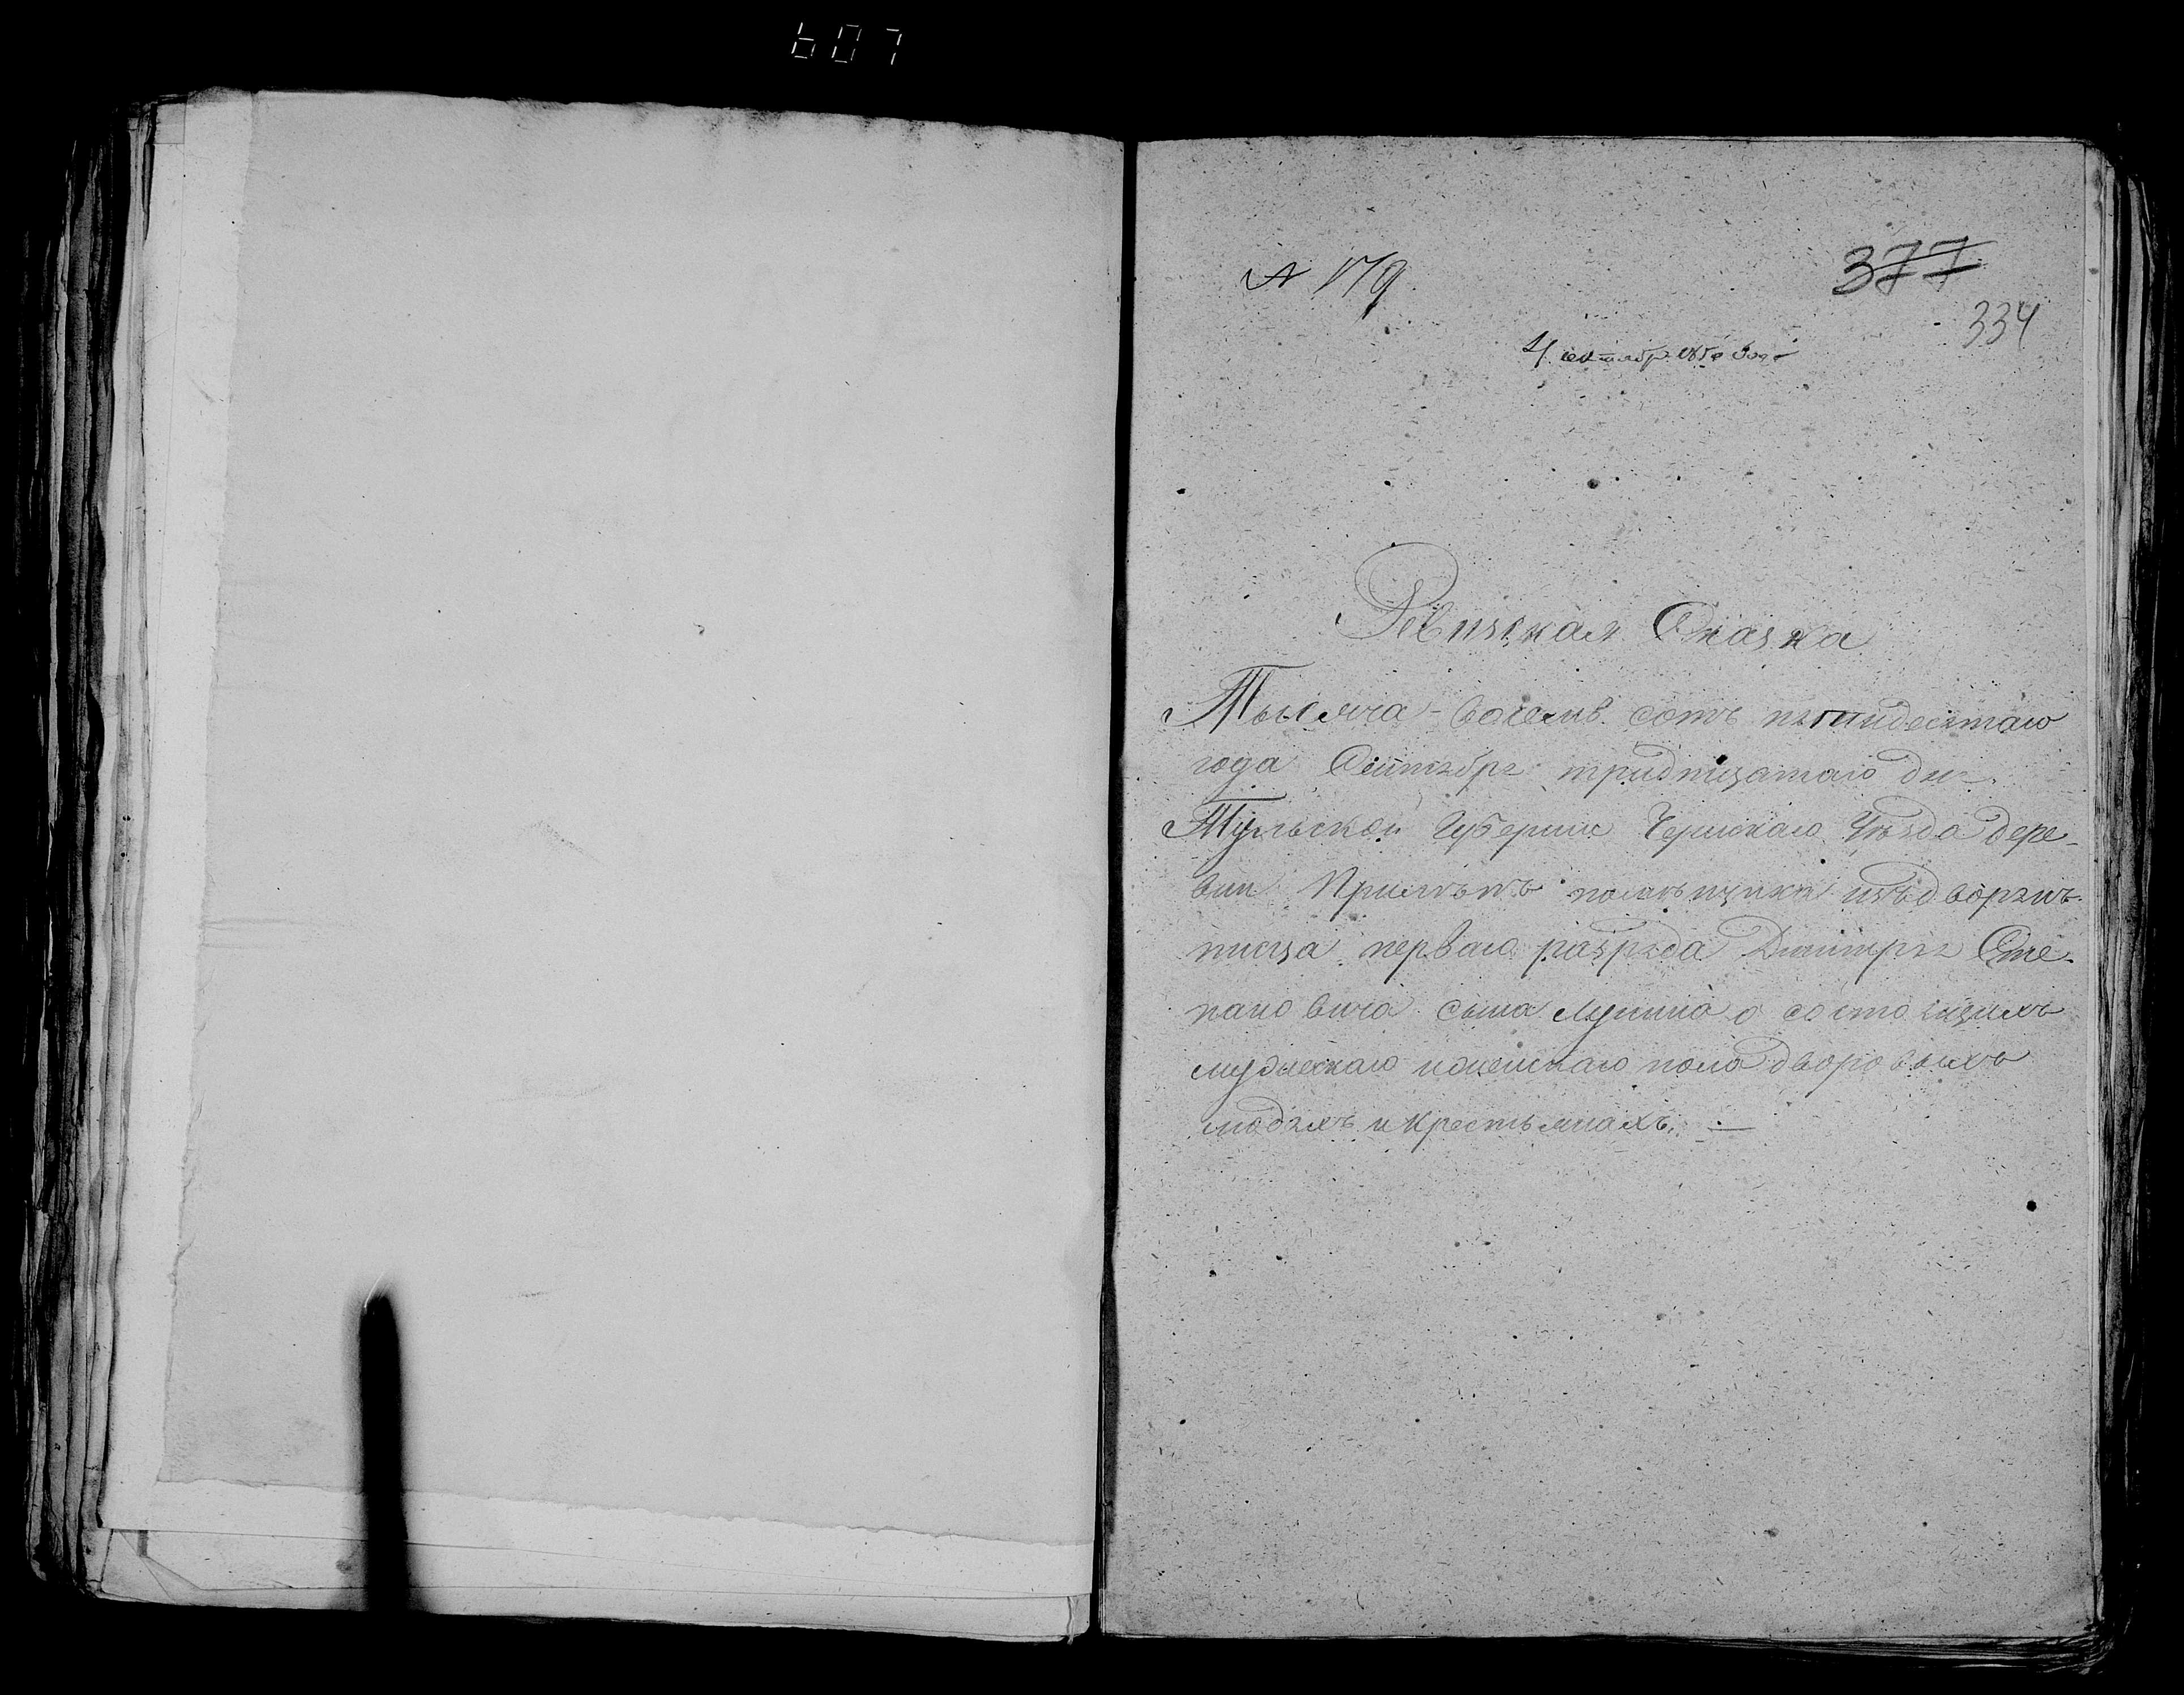 607
№ 179
377
334
4 сентябр. 1850 года
Ревизская Сказка
Тысяча восемь сотъ пятидесятаго
года Сентября тридцатаго дня
Тульской Губерніи Чернскаго Уѣзда дере-
вни помѣщика изъ дворянъ
писца перваго разряда Дмитрія Сте-
пановича сына Лунина о состоящихъ
мужескаго и женскаго пола дворовыхъ
людяхъ и крестьянахъ. —